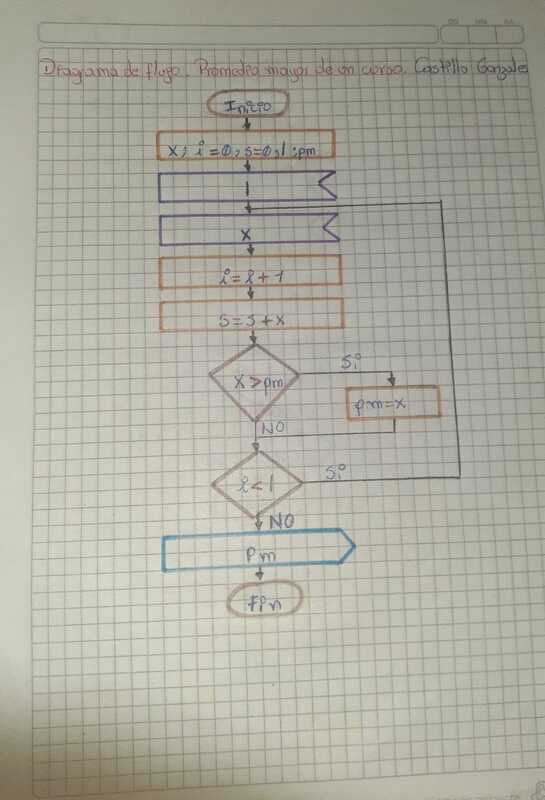 Diagrama de flujo. Promedio mayor de un curso. Castillo Gonzales
Inicio
x, i=0, s=0, l, pm
l
x
i=i+1
s=s+x
x>pm
Si
pm=x
NO
i<l
Si
NO
Pm
Fin